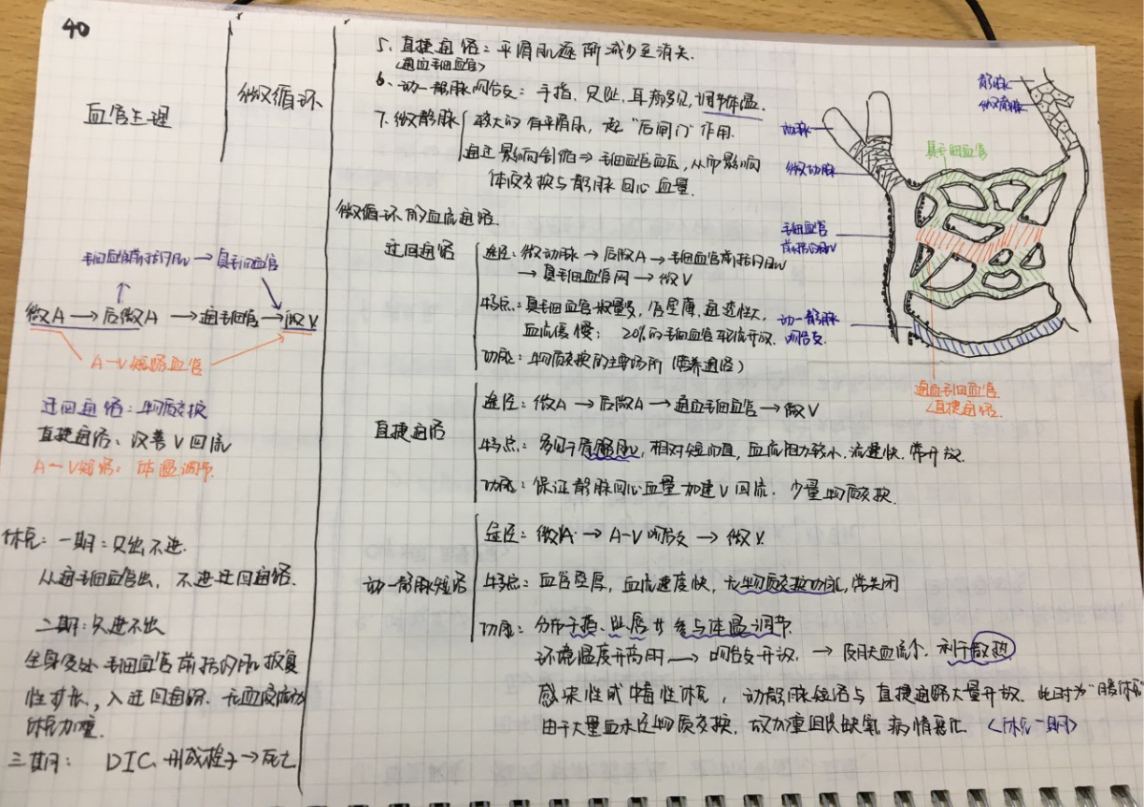 40
血管生理
微循环
5. 直捷通路：平滑肌逐渐减少至消失.
(通血毛细血管)
6. 动—静脉吻合支：手指、足趾、耳廓多见，调节体温.
7. 微静脉 较大的有平滑肌，起"后闸门"作用.
通过影响 毛细血管血压，从而影响
体液交换与静脉回心血量.
微循环的血流通路.
迂回通路
途径：微动脉 → 后微A → 毛细血管前括约肌
→ 真毛细血管网 → 微V
特点：真毛细血管数量多，管壁薄，通透性大，
血流缓慢； 20%的毛细血管轮流开放.
功能：物质交换的主要场所 (营养通路)
直捷通路
途径：微A → 后微A → 通血毛细血管 → 微V
特点：多见于骨骼肌，相对短而直，血流阻力较小，流速快.常开放.
功能：保证静脉回心血量 加速V回流. 少量物质交换.
动—静脉短路
途径：微A → A-V吻合支 → 微V.
特点：血管壁厚，血流速度快，无物质交换功能，常关闭
功能：分布于指、趾、唇 参与体温调节.
环境温度升高时 → 吻合支开放. → 皮肤血流↑，利于散热
感染性或中毒性休克，动静脉短路与直捷通路大量开放. 此时为"
由于大量血 物质交换. 故加重组织缺氧 病情恶化 <休克一期>
毛细血管前括约肌 → 真毛细血管
微A → 后微A → 通毛细管 → 微V
A-V短路血管
迂回通路：物质交换
直捷通路：改善V回流
A-V短路：体温调节.
休克：一期：只出不进.
从通毛细血管出，不进迂回通路.
二期：只进不出
全身各处毛细血管前括约肌恢复
性扩张，入迂回通路.
休克加重.
三期： DIC 形成栓子→死亡
静脉
微静脉
动脉
微动脉
真毛细血管
毛细血管
前括约肌
动—静脉
吻合支
通血毛细血管
<直捷通路.